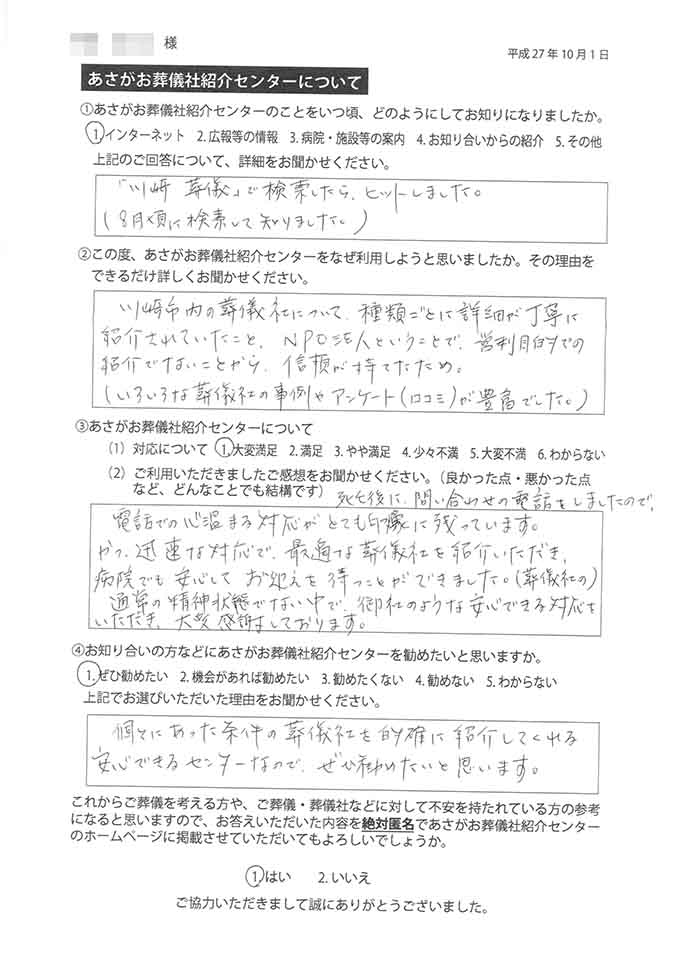 様
平成27年10月1日
あさがお葬儀社紹介センターについて
①あさがお葬儀社紹介センターのことをいつ頃、どのようにしてお知りになりましたか。
1.インターネット 2.広報等の情報 3.病院・施設等の案内 4.お知り合いからの紹介 5.その他
上記のご回答について、詳細をお聞かせください。
「川崎 葬儀」で検索したら、ヒットしました。
(8月頃に検索して知りました。)
②この度、あさがお葬儀社紹介センターをなぜ利用しようと思いましたか。その理由を
できるだけ詳しくお聞かせください。
川崎市内の葬儀社について、種類ごとに詳細が丁寧に
紹介されていたこと、NPO法人ということで、営利目的での
紹介でないことから、信頼が持てたため。
(いろいろな葬儀社の事例やアンケート(口コミ)が豊富でした。)
③あさがお葬儀社紹介センターについて
(1)対応について 1.大変満足 2.満足 3.やや満足 4.少々不満 5.大変不満 6.わからない
(2)ご利用いただきましたご感想をお聞かせください。(良かった点・悪かった点
など、どんなことでも結構です) 死亡後に、問い合わせの電話をしましたので、
電話での心温まる対応がとても印象に残っています。
かつ、迅速な対応で、最適な葬儀社を紹介いただき、
病院でも安心してお迎えを待つことができました。(葬儀社の)
通常の精神状態でない中で、御社のような安心できる対応を
いただき、大変感謝しております。
④お知り合いの方などにあさがお葬儀社紹介センターを勧めたいと思いますか。
1.ぜひ勧めたい 2.機会があれば勧めたい 3.勧めたくない 4.勧めない 5.わからない
上記でお選びいただいた理由をお聞かせください。
個々にあった条件の葬儀社を的確に紹介してくれる
安心できるセンターなので、ぜひ勧めたいと思います。
これからご葬儀を考える方や、ご葬儀・葬儀社などに対して不安を持たれている方の参考
になると思いますので、お答えいただいた内容を絶対匿名であさがお葬儀社紹介センター
のホームページに掲載させていただいてもよろしいでしょうか。
1.はい 2.いいえ
ご協力いただきまして誠にありがとうございました。